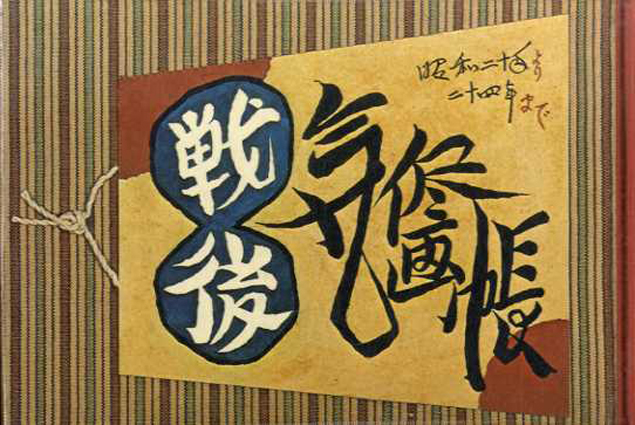 戦後
気侭画帳
昭和二十年より
二十四年まで